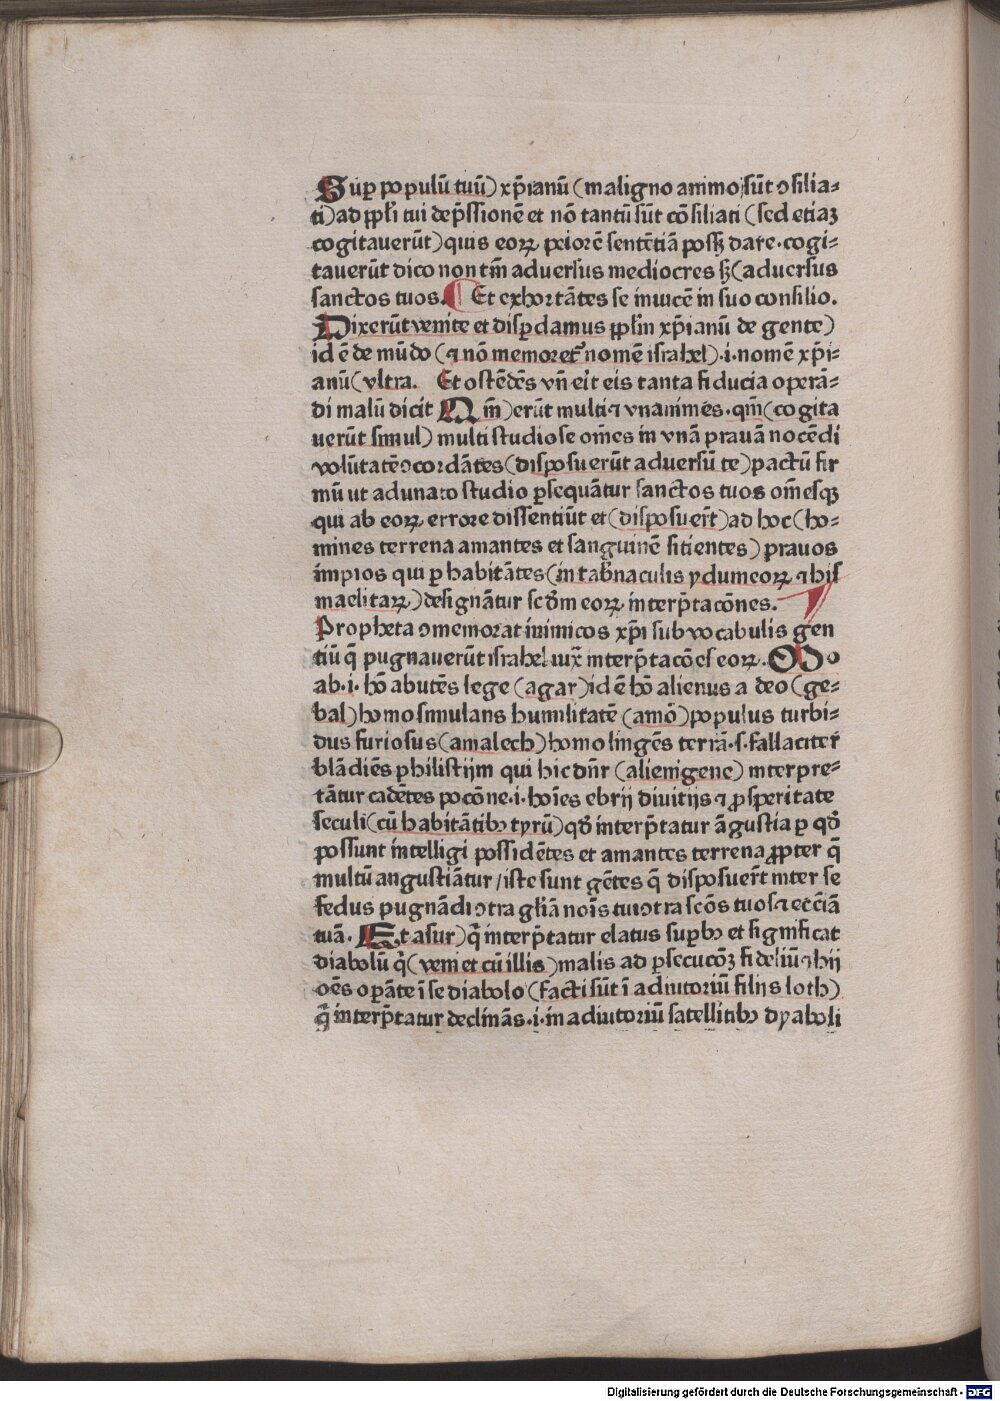 Sup populū tuū) xp̄ianū (maligno animo sūt ꝯsilia⸗
ti) ad ppl̄i tui dep̄ssionē et nō tantū sūt cōsiliati (sed etiaꝫ
cogitauerūt) quis eoꝝ peiorē sentētiā possꝫ dare. cogi⸗
tauerūt dico non tm̄ aduersus mediocres sꝫ (aduersus
sanctos tuos. ¶ Et exhortātes se inuicē in suo consilio.
Dixerūt venite et disꝑdamus ppl̄m xp̄ianū de gente)
id ē de mūdo (⁊ nō memoret᷑ nomē israhel).i. nomē xp̄i⸗
anū (vltra. Et ostēdēs vn̄ eit eis tanta fiducia operā⸗
di malū dicit Qm̄) erūt multi ⁊ vnanimēs. qm̄ (cogita
uerūt simul) multi studiose om̄es in vnā prauā nocēdi
volūtatē ꝯcordātes (disposuerūt aduersū te) pactū fir
mū ut adunato studio ꝑsequātur sanctos tuos om̄esqꝫ
qui ab eoꝝ errore dissentiūt et (disposuer̄t) ad hoc (ho⸗
mines terrena amantes et sanguinē sitientes) prauos
impios qui ꝑ habitātes (in tab̄naculis ydumeoꝝ ⁊ his
maelitaꝝ) designātur scd̄m eoꝝ interp̄tacōnes.
Propheta ꝯmemorat inimicos xp̄i sub vocabulis gen
tiū q̄ pugnauerūt israhel iux̄ interp̄tacōes eoꝝ. Mo
ab .i. hō abutēs lege (agar) id ē hō alienus a deo (ge⸗
bal) homo simulans humilitatē (amō) populus turbi⸗
dus furiosus (amalech) homo lingēs terrā .s. fallaciter̄
blādiēs philistijm qui hic dn̄r (alienigene) interpre⸗
tātur cadētes pocōne .i. hoīes ebrij diuitijs ⁊ ꝓsperitate
seculi (cū habitātibꝫ tyrū) qd̄ interp̄tatur āgustia ꝑ qd̄
possunt intelligi possidētes et amantes terrena ꝓpter q̄
multū angustiātur / iste sunt gētes q̄ disposuer̄t inter se
fedus pugnādi ꝯtra gl̄iā nōis tui ꝯtra scōs tuos ⁊ ecc̄iā
tuā. Et asur) q̄ interp̄tatur elatus suꝑbꝫ et significat
diabolū q̄ (venit et cū illis) malis ad ꝑsecucōꝫ fideliū ⁊ hij
oēs oꝑāte ī se diabolo (facti sūt ī adiutoriū filijs loth)
q̄ interp̄tatur declinās .i. in adiutoriū satellitibꝫ dyaboli
Digitalisierung gefördert durch die Deutsche Forschungsgemeinschaft - DFG